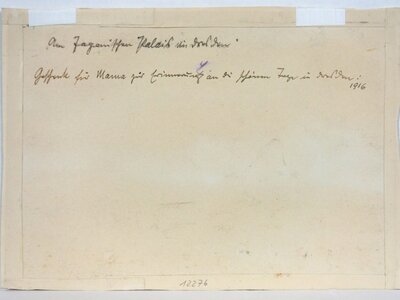 Am Japanischen Palais in Dresden
Geschenk für Mama zur Erinnerung an die schönen Tage in Dresden.
1916
12274